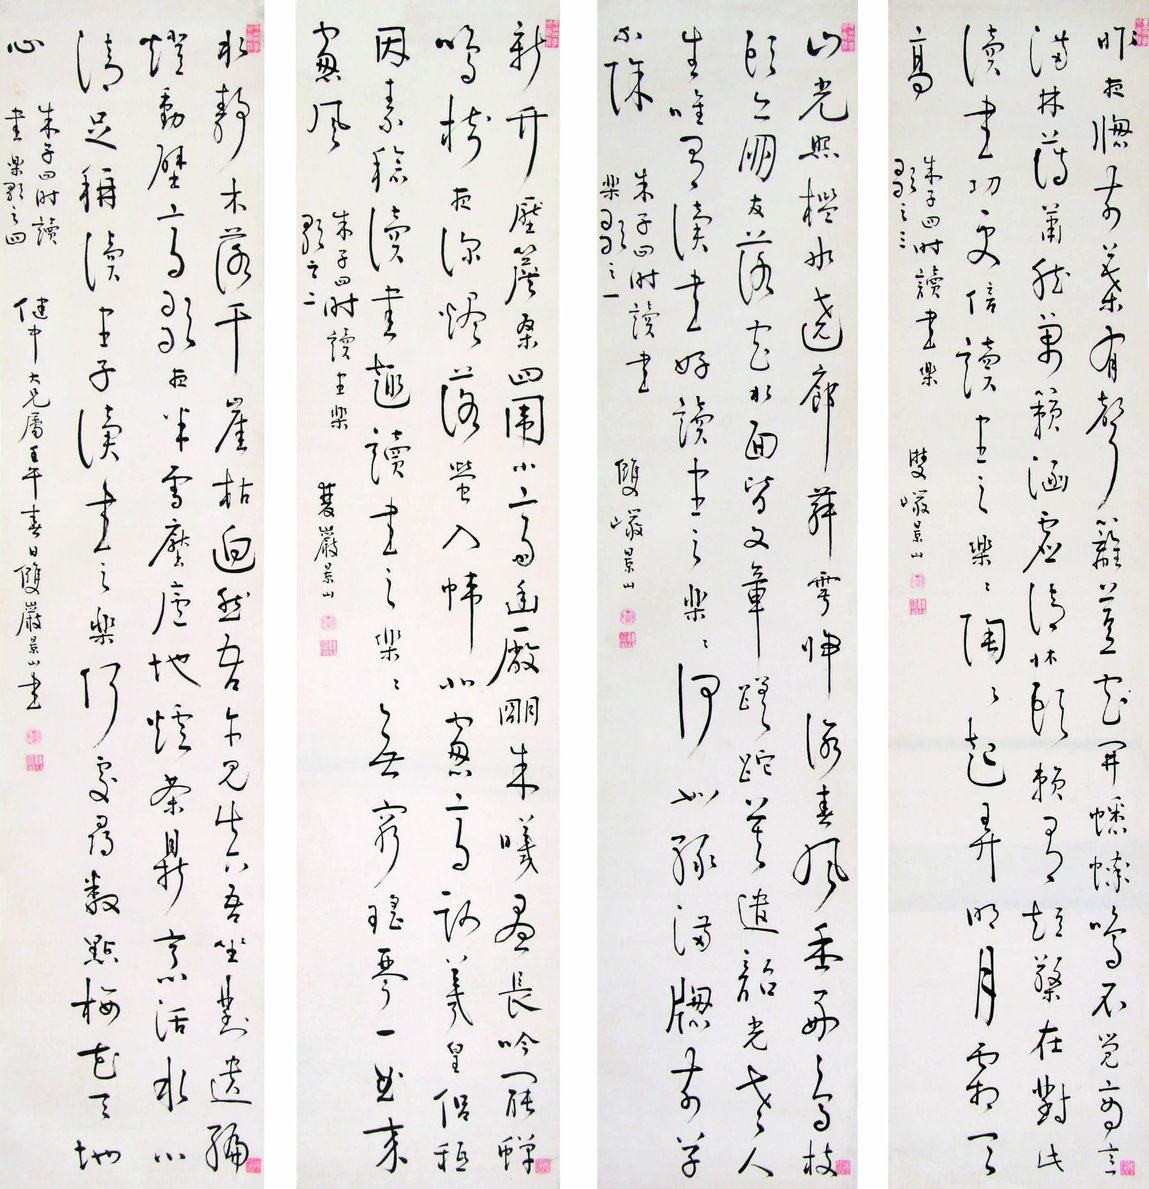 昨夜牕前葉有聲籬荳花開蟋蟀鳴不覺商意
滿林薄蕭然萬籟涵虛清賴有短檠在對此
讀書功更倍讀書之樂樂陶陶起弄明月霜天
高
朱子四時讀書樂
歌之三
雙巖景山
山光照檻水遶廊舞雩歸詠春風香好鳥枝
頭亦朋友落花水面皆文章蹉跎莫遣韶光老人
生唯有讀書好讀書之樂樂何如綠滿牕前草
不除
朱子四時讀書
樂歌之一
雙巖景山
新竹壓簷桑四圍小齋幽敞明朱曦晝長吟罷蟬
鳴樹夜深燼落螢入幃北窗高臥羲皇侶祗
因素稔讀書趣讀書之樂樂無窮瑤琴一曲來
薰風
朱子四時讀書樂
歌之二
雙巖景山
水靜木落千崖枯迥然吾亦見真吾坐對遺編
燈動壁高歌夜半雪壓廬地爐茶鼎烹活水心
清足稱讀書子讀書之樂何處尋數點梅花天地
心
朱子四時讀
書樂歌之四
健中大兄屬壬午春日雙巖景山書